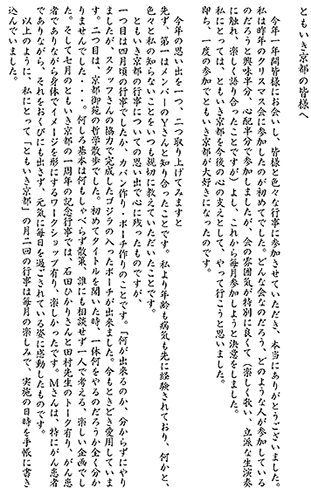 ともいき京都の皆様へ
今年一年間皆様にお会いし、皆様と色々な行事に参加させていただき、本当にありがとうございました。
私は昨年のクリスマス会に参加したのが初めてでした。どんな会なのだろう、どのような人が参加している
のだろうと興味半分、心配半分で参加しましたが、会の雰囲気が特別に良くて（楽しく歌い、立派な生演奏
に触れ、楽しく語り合ったことですが）よし、これから毎月参加しようと決意をしました。
私にとっては、ともいき京都を今後の心の支えとして、やって行こうと思いました。
即ち、一度の参加でともいき京都が大好きになったのです。
今年の思い出を一つ、二つ取り上げてみますと
先ず、第一はメンバーのYさんと知り合ったことです。私より年齢も病気も先に経験されており、何かと、
色々と私の知らないことをいつも親切に教えていただいたことです。
ともいき京都の行事についての思い出で心に残ったものですが、
一つ目は四月頃の行事でしたか、カバン作り・ポーチ作りのことです。「何が出来るのか、分からずにやり
ましたが、スタッフさんの協力で完成したゴジラの入ったポーチが出来ました。今もときどき愛用していま
す。二つ目は、京都御苑の哲学散歩でした。初めてタイトルを聞いた時、一体何をやるのだろうか全く分か
りませんでした・・・。何しろ基本は何もしゃべらず散策、誰にも相談せず一人で考える、楽しい企画でし
た。そして七月のともいき京都の一周年の記念行事では、石田ひかりさんと田村先生のトーク有り、がん患
者でありながら身体でイメージを形にするワークショップ有り、楽しかったです。Mさんは、特にがん患者
でありながら、それをおくびにも出さず、元気に毎日を過ごされている姿に感動したものです。
以上のように、私にとって「ともいき京都」の月二回の行事は毎月の楽しみで、実施の日時を手帳に書き
込んでいました。